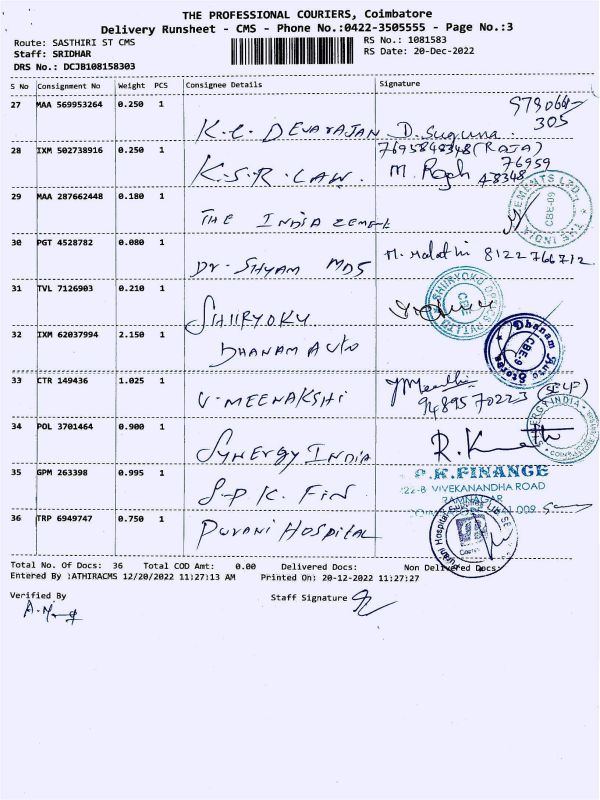 THE PROFESSIONAL COURIERS, Coimbatore
Delivery Runsheet - CMS - Phone No.:0422-3505555 - Page No.:3
Route: SASTHIRI ST CMS
RS No.: 1081583
Staff: SRIDHAR
RS Date: 20-Dec-2022
DRS No.: DCJB108158303
S No Consignment No Weight PCS Consignee Details Signature
27 MAA 569953264 0.250 1
K.C. DEVARAJAN D. Suguna
305
28 IXM 502738916 0.250 1
7695848348 (RAJA)
K.S.R. LAW. M. Rajeh 76959
48348
29 MAA 287662448 0.180 1
THE INDIA CEMENT
CBE-09
30 PGT 4528782 0.080 1
Dr. SHYAM MDS M. Malathi 8122766712
31 TVL 7126903 0.210 1
SHURYOKU
32 IXM 62037994 2.150 1
DHANAM AUTO
Dhanam Auto Stores
CBE-9
33 CTR 149436 1.025 1
V. MEENAKSHI
9489570223 (SELF)
34 POL 3701464 0.900 1
SYNERGY INDIA
SYNERGY INDIA
35 GPM 263398 0.995 1
S.P.K. FIN
P.K.FINANCE
22-B VIVEKANANDHA ROAD
RAMNAGAR
36 TRP 6949747 0.750 1
PURANI HOSPITAL
Total No. Of Docs: 36 Total COD Amt: 0.00 Delivered Docs: Non Delivered Docs:
Entered By :ATHIRACMS 12/20/2022 11:27:13 AM Printed On: 20-12-2022 11:27:27
Verified By
Staff Signature